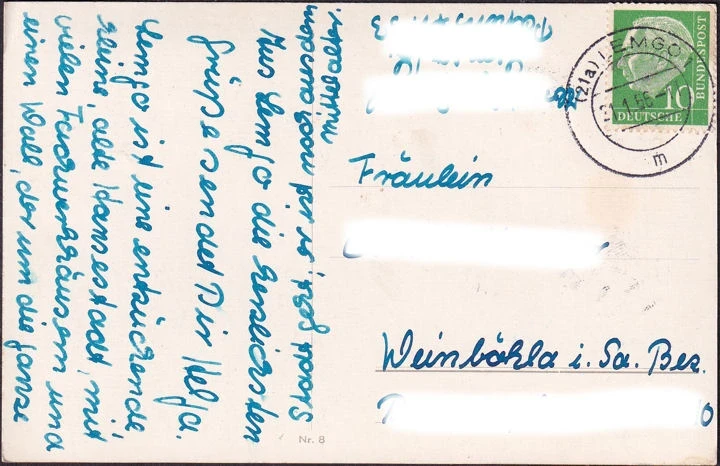 Aus Lemgo die herzlichsten
Grüße sendet Dir Helga.
Lemgo ist eine entzückende
kleine, alte Hansestadt, mit
vielen Fachwerkhäusern und
einen Wall, der um die ganze
Stadt geht
Mittelalter
Fräulein
Weinböhla i. Sa. Bez.
Nr. 8
(21a) LEMGO
m
10
DEUTSCHE
BUNDESPOST